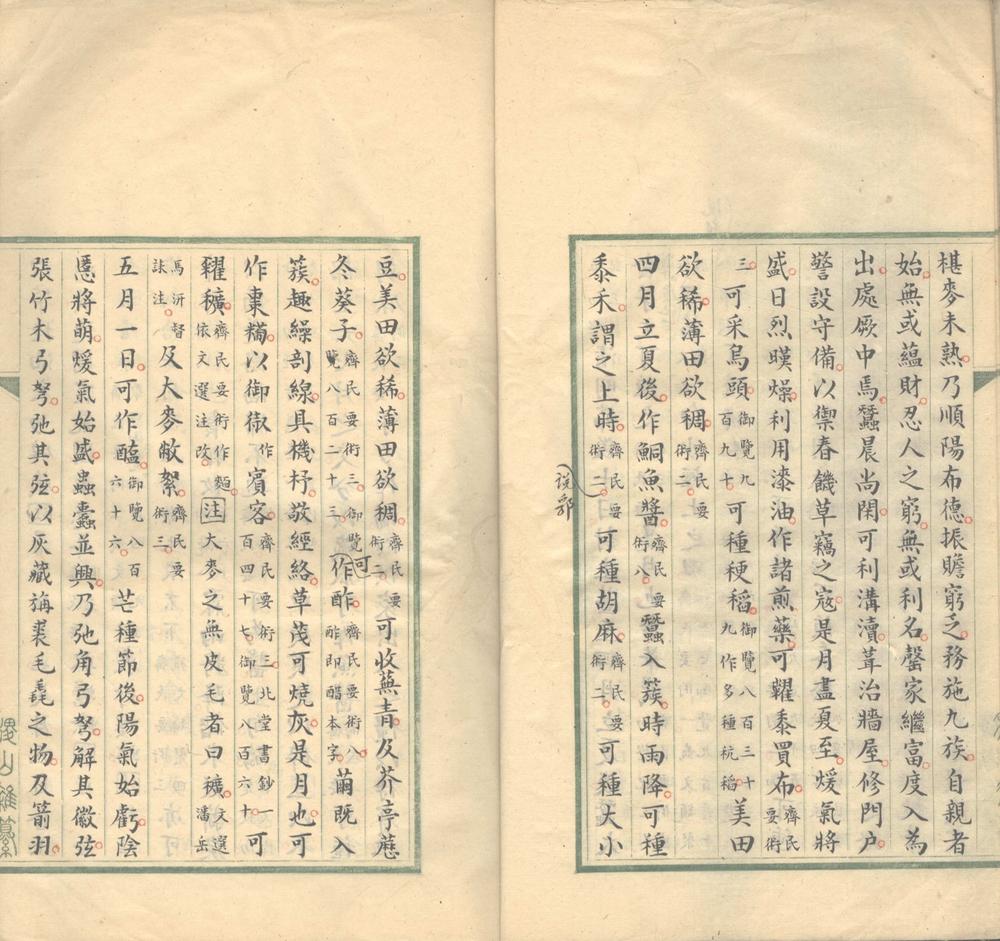 椹麥未熟乃順陽布德振贍窮乏務施九族自親者
始無或蘊財忍人之窮無或利名罄家繼富度入為
出處厥中焉蠶晨尚閑可利溝瀆葺治牆屋修門户
警設守備以禦春饑草竊之寇是月盡夏至煖氣將
盛日烈暵燥利用漆油作諸煎藥可糶黍買布齊民要術
三可采烏頭御覽九百九十可種稉稻御覽八百三十九作多種杭稻美田
欲稀薄田欲稠齊民要術二
四月立夏後作鮦魚醬齊民要術八蠶入簇時雨降可種
黍禾謂之上時齊民要術二可種胡麻齊民要術二可種大小
説郛
豆美田欲稀薄田欲稠齊民要術二可收蕪青及芥亭藶
冬葵子齊民要術三御覽八百二十三可作酢齊民要術八酢即醋本字繭既入
簇趣繰剖線具機杼敬經絡草茂可燒灰是月也可
作棗糒以御御作賓客齊民要術三北堂書鈔一百四十七御覽八百六十可
糶穬齊民要術作麵依文選注改注大麥之無皮毛者曰穬文選潘岳
馬汧督誄注及大麥敝絮齊民要術三
五月一日可作醢御覽八百六十六芒種節後陽氣始虧陰
慝將萌煖氣始盛蟲蠹並興乃弛角弓弩解其徽弦
張竹木弓弩弛其弦以灰藏旃裘毛毳之物及箭羽